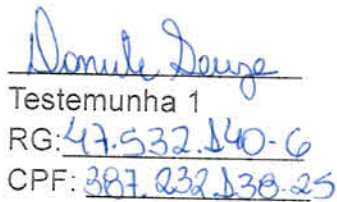 Danule Souza
Testemunha 1
RG: 47.532.140-6
CPF: 387.232.138-25